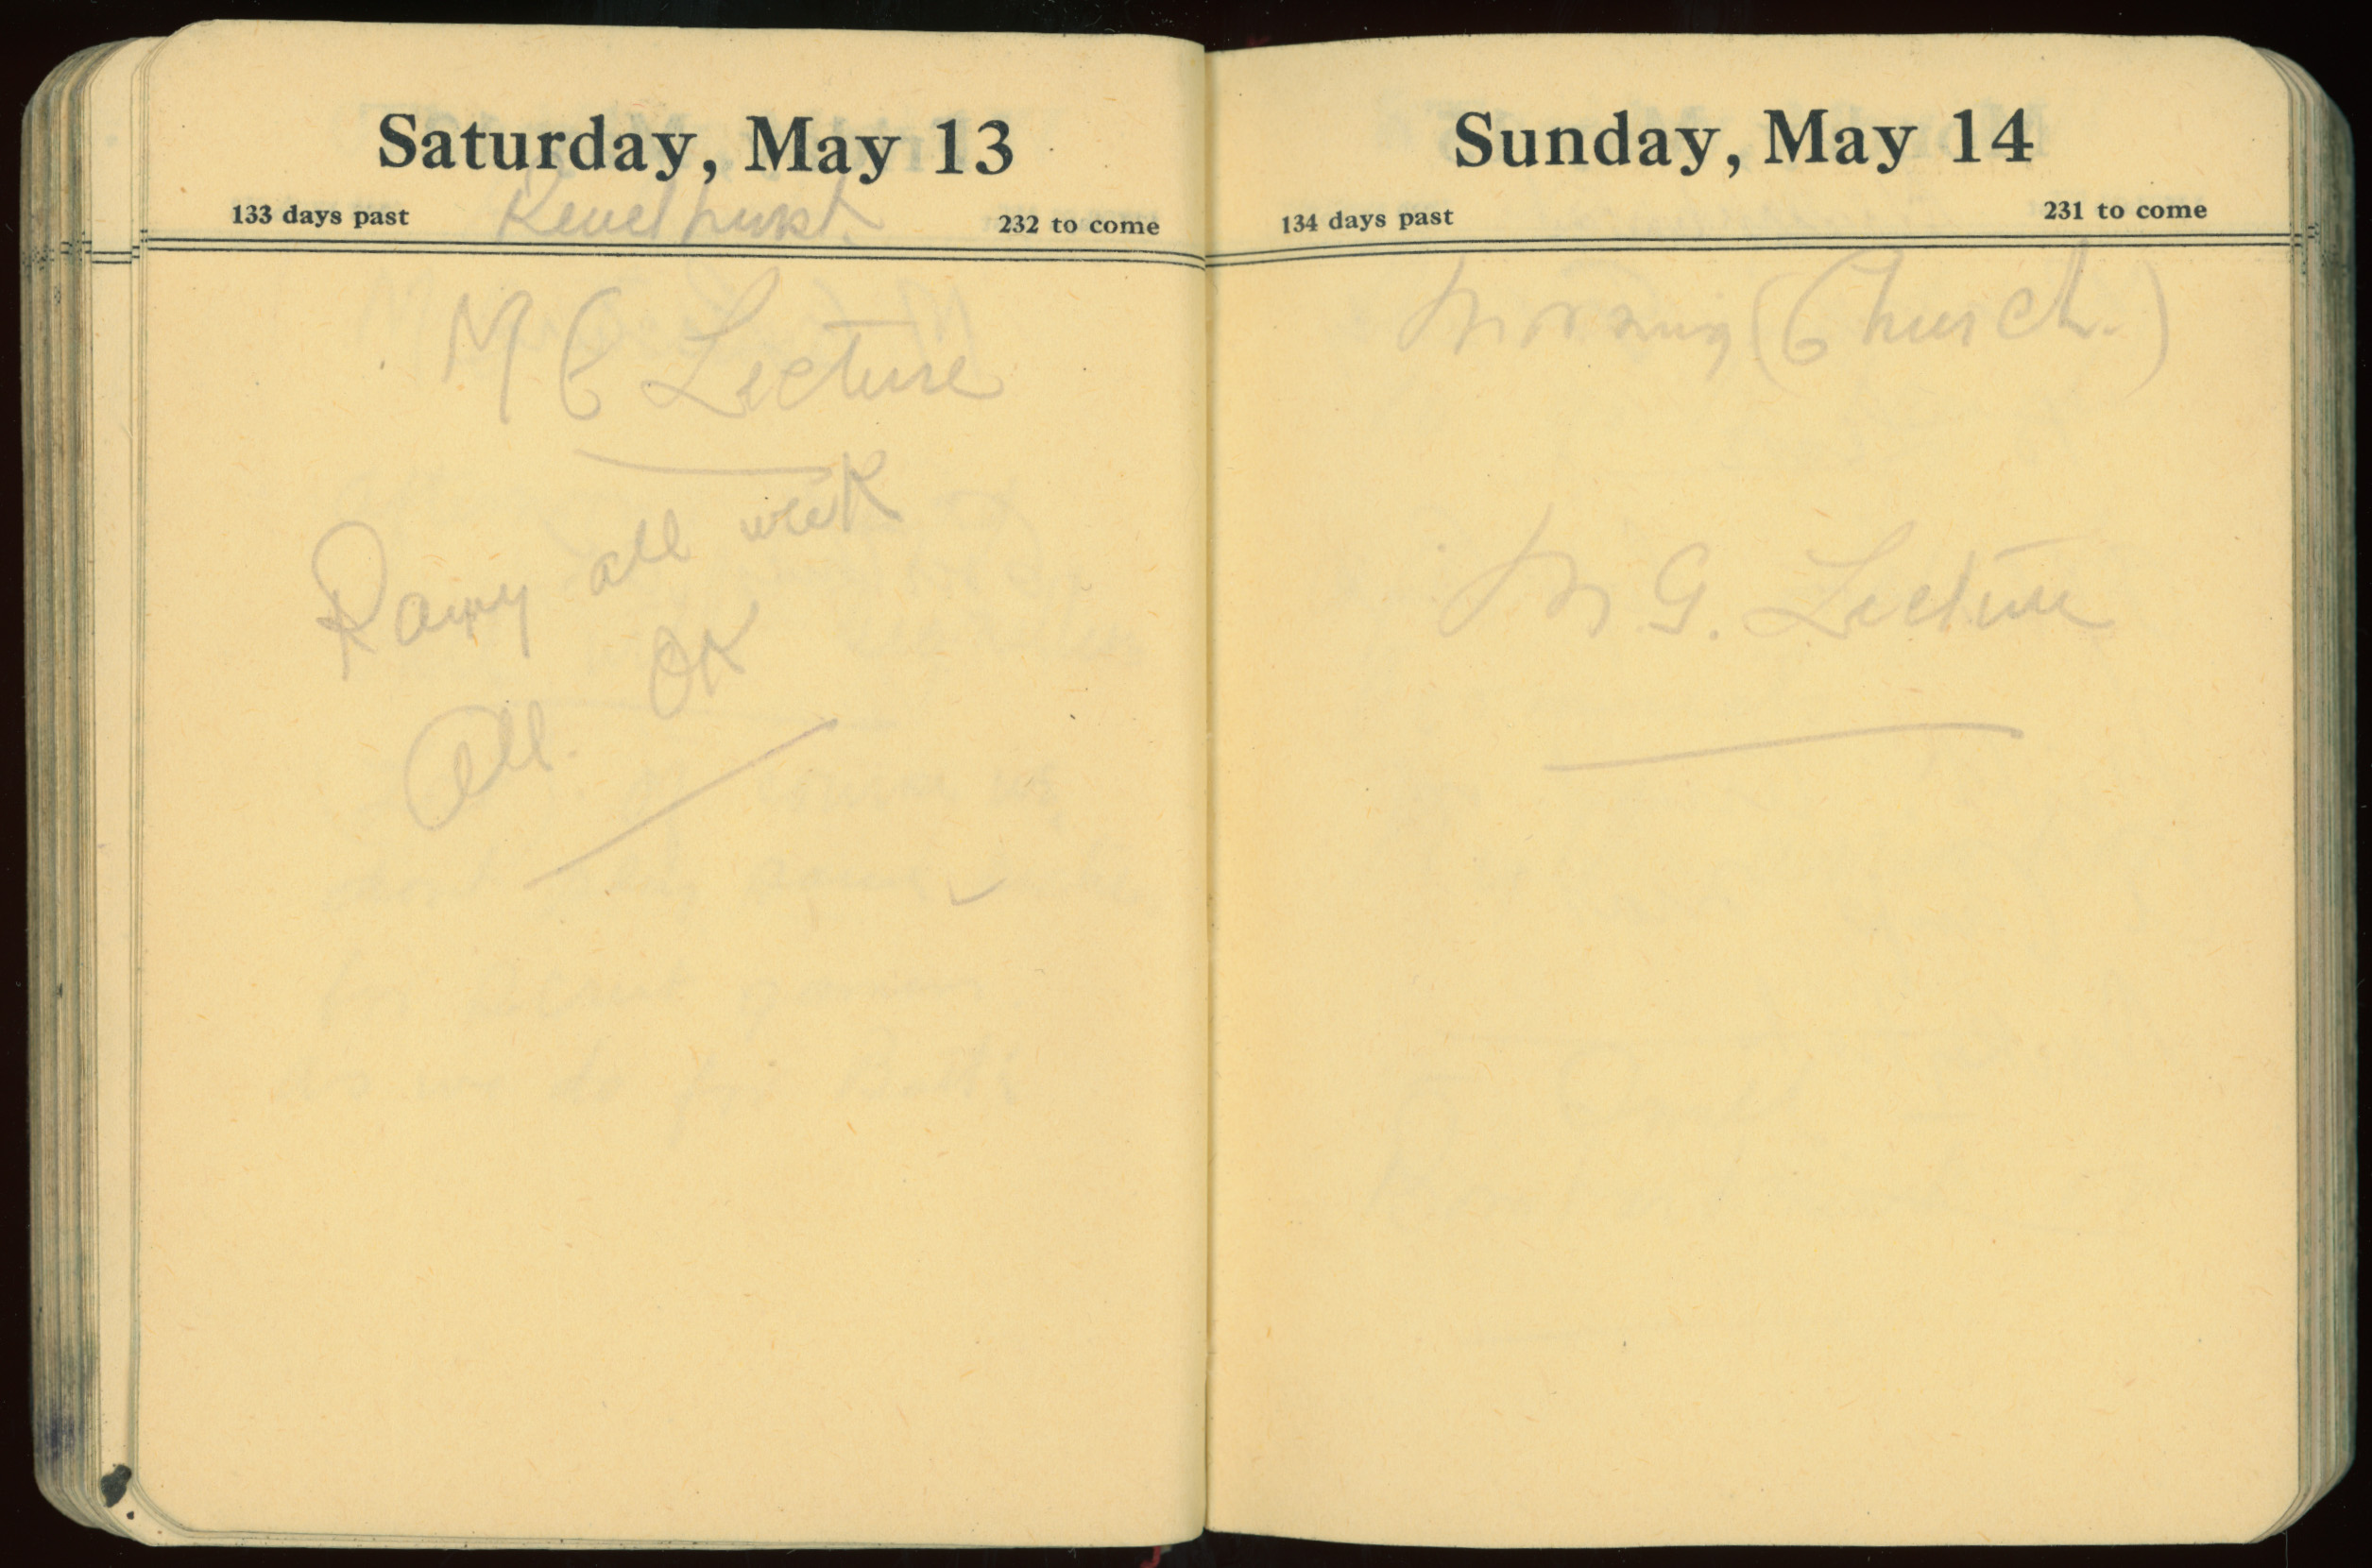 Saturday, May 13
133 days past
232 to come
M G Lecture
Rainy all week
All. OK
Sunday, May 14
134 days past
231 to come
Morning (Church.)
M G. Lecture